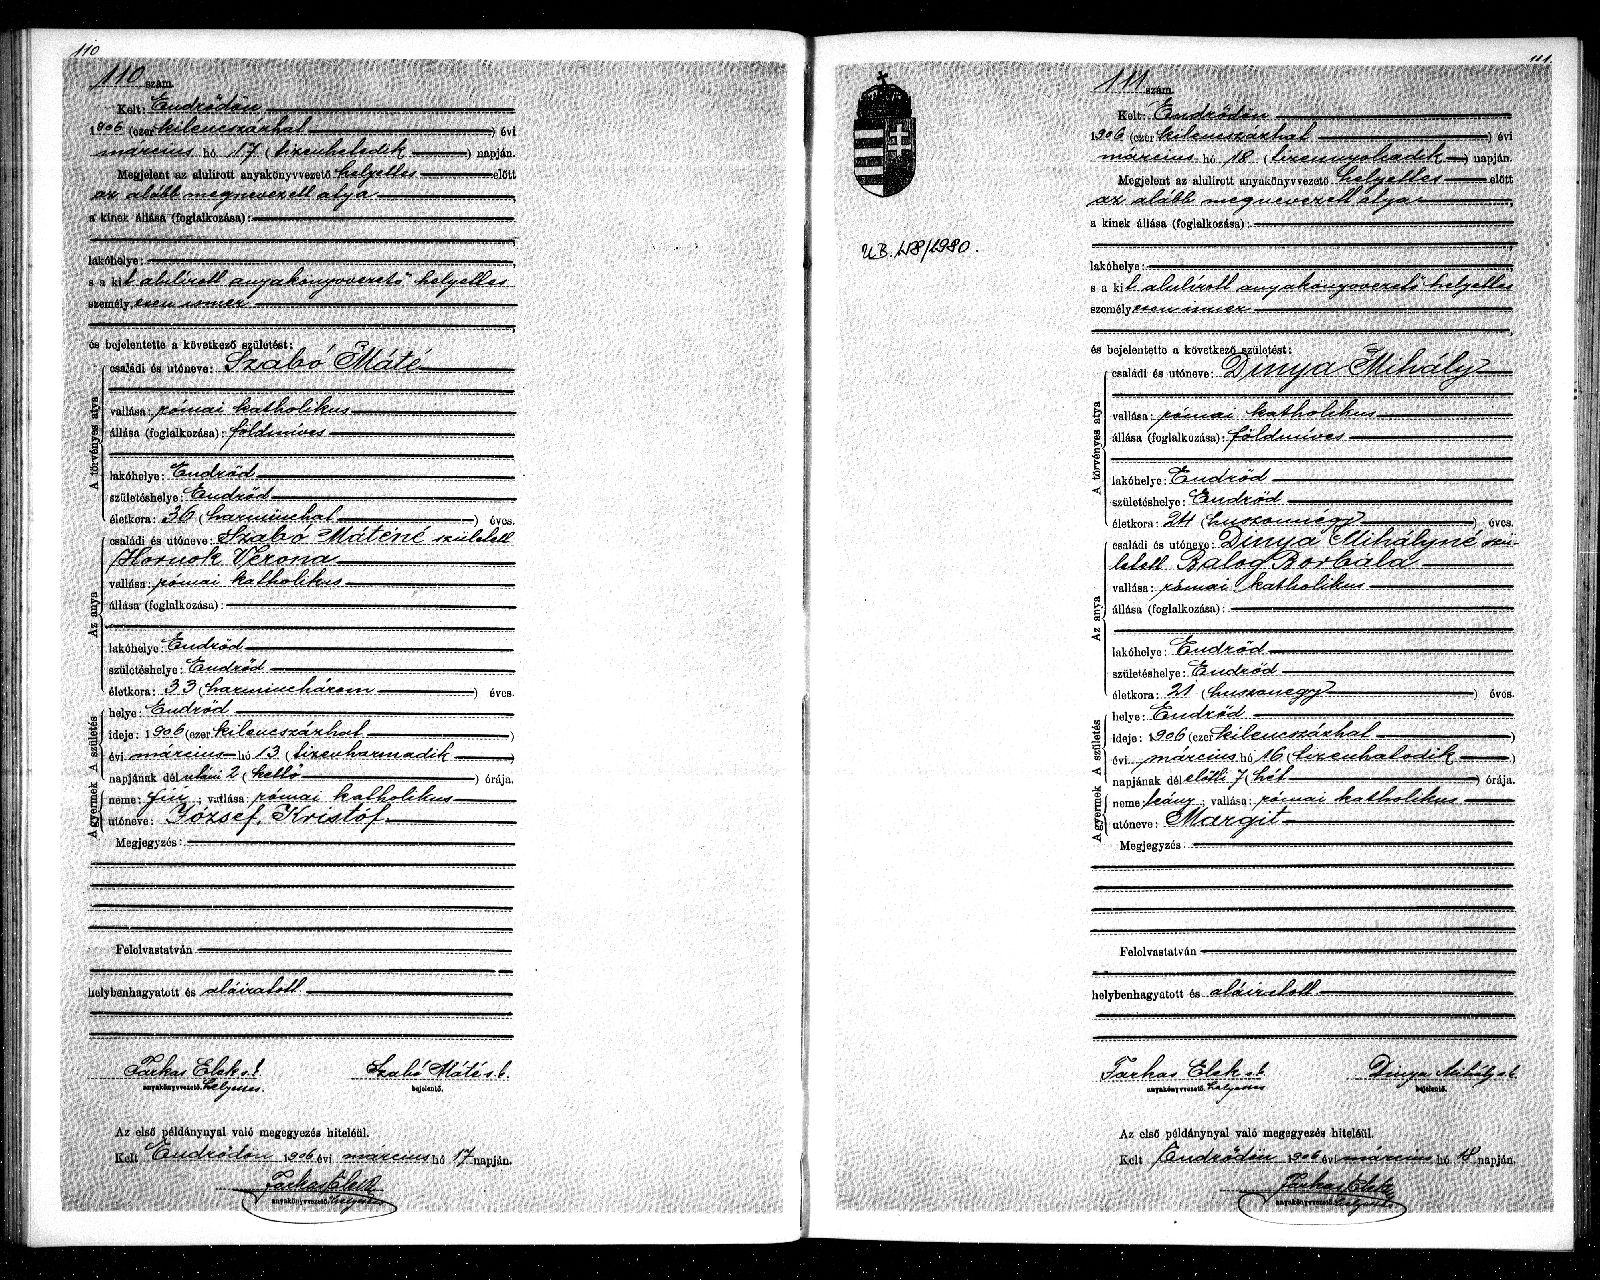 110
110 szám.
Kelt: Endrődön
1906 (ezer kilencszázhat) évi
március hó 17 (tizenhetedik) napján.
Megjelent az alulirott anyakönyvvezető helyettes előtt
az alább megnevezett atya,
a kinek állása (foglalkozása):
lakóhelye:
s a kit alulírott anyakönyvvezető helyettes
személyesen ismer
és bejelentette a következő születést:
A törvényes atya
családi és utóneve: Szabó Máté
vallása: római katholikus
állása (foglalkozása): földmíves
lakóhelye: Endrőd
születéshelye: Endrőd
életkora: 36 (harminchat) éves.
Az anya
családi és utóneve: Szabó Máténé született
Hornok Verona
vallása: római katholikus
állása (foglalkozása):
lakóhelye: Endrőd
születéshelye: Endrőd
életkora: 33 (harminchárom) éves.
A születés
helye: Endrőd
ideje: 1906 (ezer kilencszázhat)
évi március hó 13 (tizenharmadik)
napjának dél utáni 2 (kettő) órája.
A gyermek
neme: fiú; vallása: római katholikus
utóneve: József, Kristóf
Megjegyzés:
Felolvastatván
helybenhagyatott és aláiratott
Farkas Elek s.k. Szabó Máté s.k.
anyakönyvvezető helyettes bejelentő.
Az első példánynyal való megegyezés hiteléül.
Kelt Endrődön 1906 évi március hó 17 napján.
Farkas Elek
anyakönyvvezető helyettes
111
111 szám.
U.B. 218/1980.
Kelt: Endrődön
1906 (ezer kilencszázhat) évi
március hó 18 (tizennyolcadik) napján.
Megjelent az alulirott anyakönyvvezető helyettes előtt
az alább megnevezett atya,
a kinek állása (foglalkozása):
lakóhelye:
s a kit alulírott anyakönyvvezető helyettes
személyesen ismer
és bejelentette a következő születést:
A törvényes atya
családi és utóneve: Dinya Mihály
vallása: római katholikus
állása (foglalkozása): földmíves
lakóhelye: Endrőd
születéshelye: Endrőd
életkora: 24 (huszonnégy) éves.
Az anya
családi és utóneve: Dinya Mihályné szü-
letett Balog Borbála
vallása: római katholikus
állása (foglalkozása):
lakóhelye: Endrőd
születéshelye: Endrőd
életkora: 21 (huszonegy) éves.
A születés
helye: Endrőd
ideje: 1906 (ezer kilencszázhat)
évi március hó 16 (tizenhatodik)
napjának dél előtti 7 (hét) órája.
A gyermek
neme: leány; vallása: római katholikus
utóneve: Margit
Megjegyzés:
Felolvastatván
helybenhagyatott és aláiratott
Farkas Elek s.k. Dinya Mihály s.k.
anyakönyvvezető helyettes bejelentő.
Az első példánynyal való megegyezés hiteléül.
Kelt Endrődön 1906 évi március hó 18 napján.
Farkas Elek
anyakönyvvezető helyettes